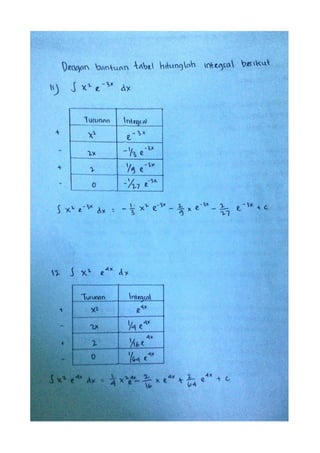 Dengan bantuan tabel hitunglah integral berikut
11) ∫ x² e⁻³ˣ dx
Turunan Integral
+ x² e⁻³ˣ
- 2x -1/3 e⁻³ˣ
+ 2 1/9 e⁻³ˣ
- 0 -1/27 e⁻³ˣ
∫ x² e⁻³ˣ dx = - 1/3 x² e⁻³ˣ - 2/9 x e⁻³ˣ - 2/27 e⁻³ˣ + c
12. ∫ x² e⁴ˣ dx
Turunan Integral
+ x² e⁴ˣ
- 2x 1/4 e⁴ˣ
+ 2 1/16 e⁴ˣ
- 0 1/64 e⁴ˣ
∫ x² e⁴ˣ dx = 1/4 x² e⁴ˣ - 2/16 x e⁴ˣ + 2/64 e⁴ˣ + c